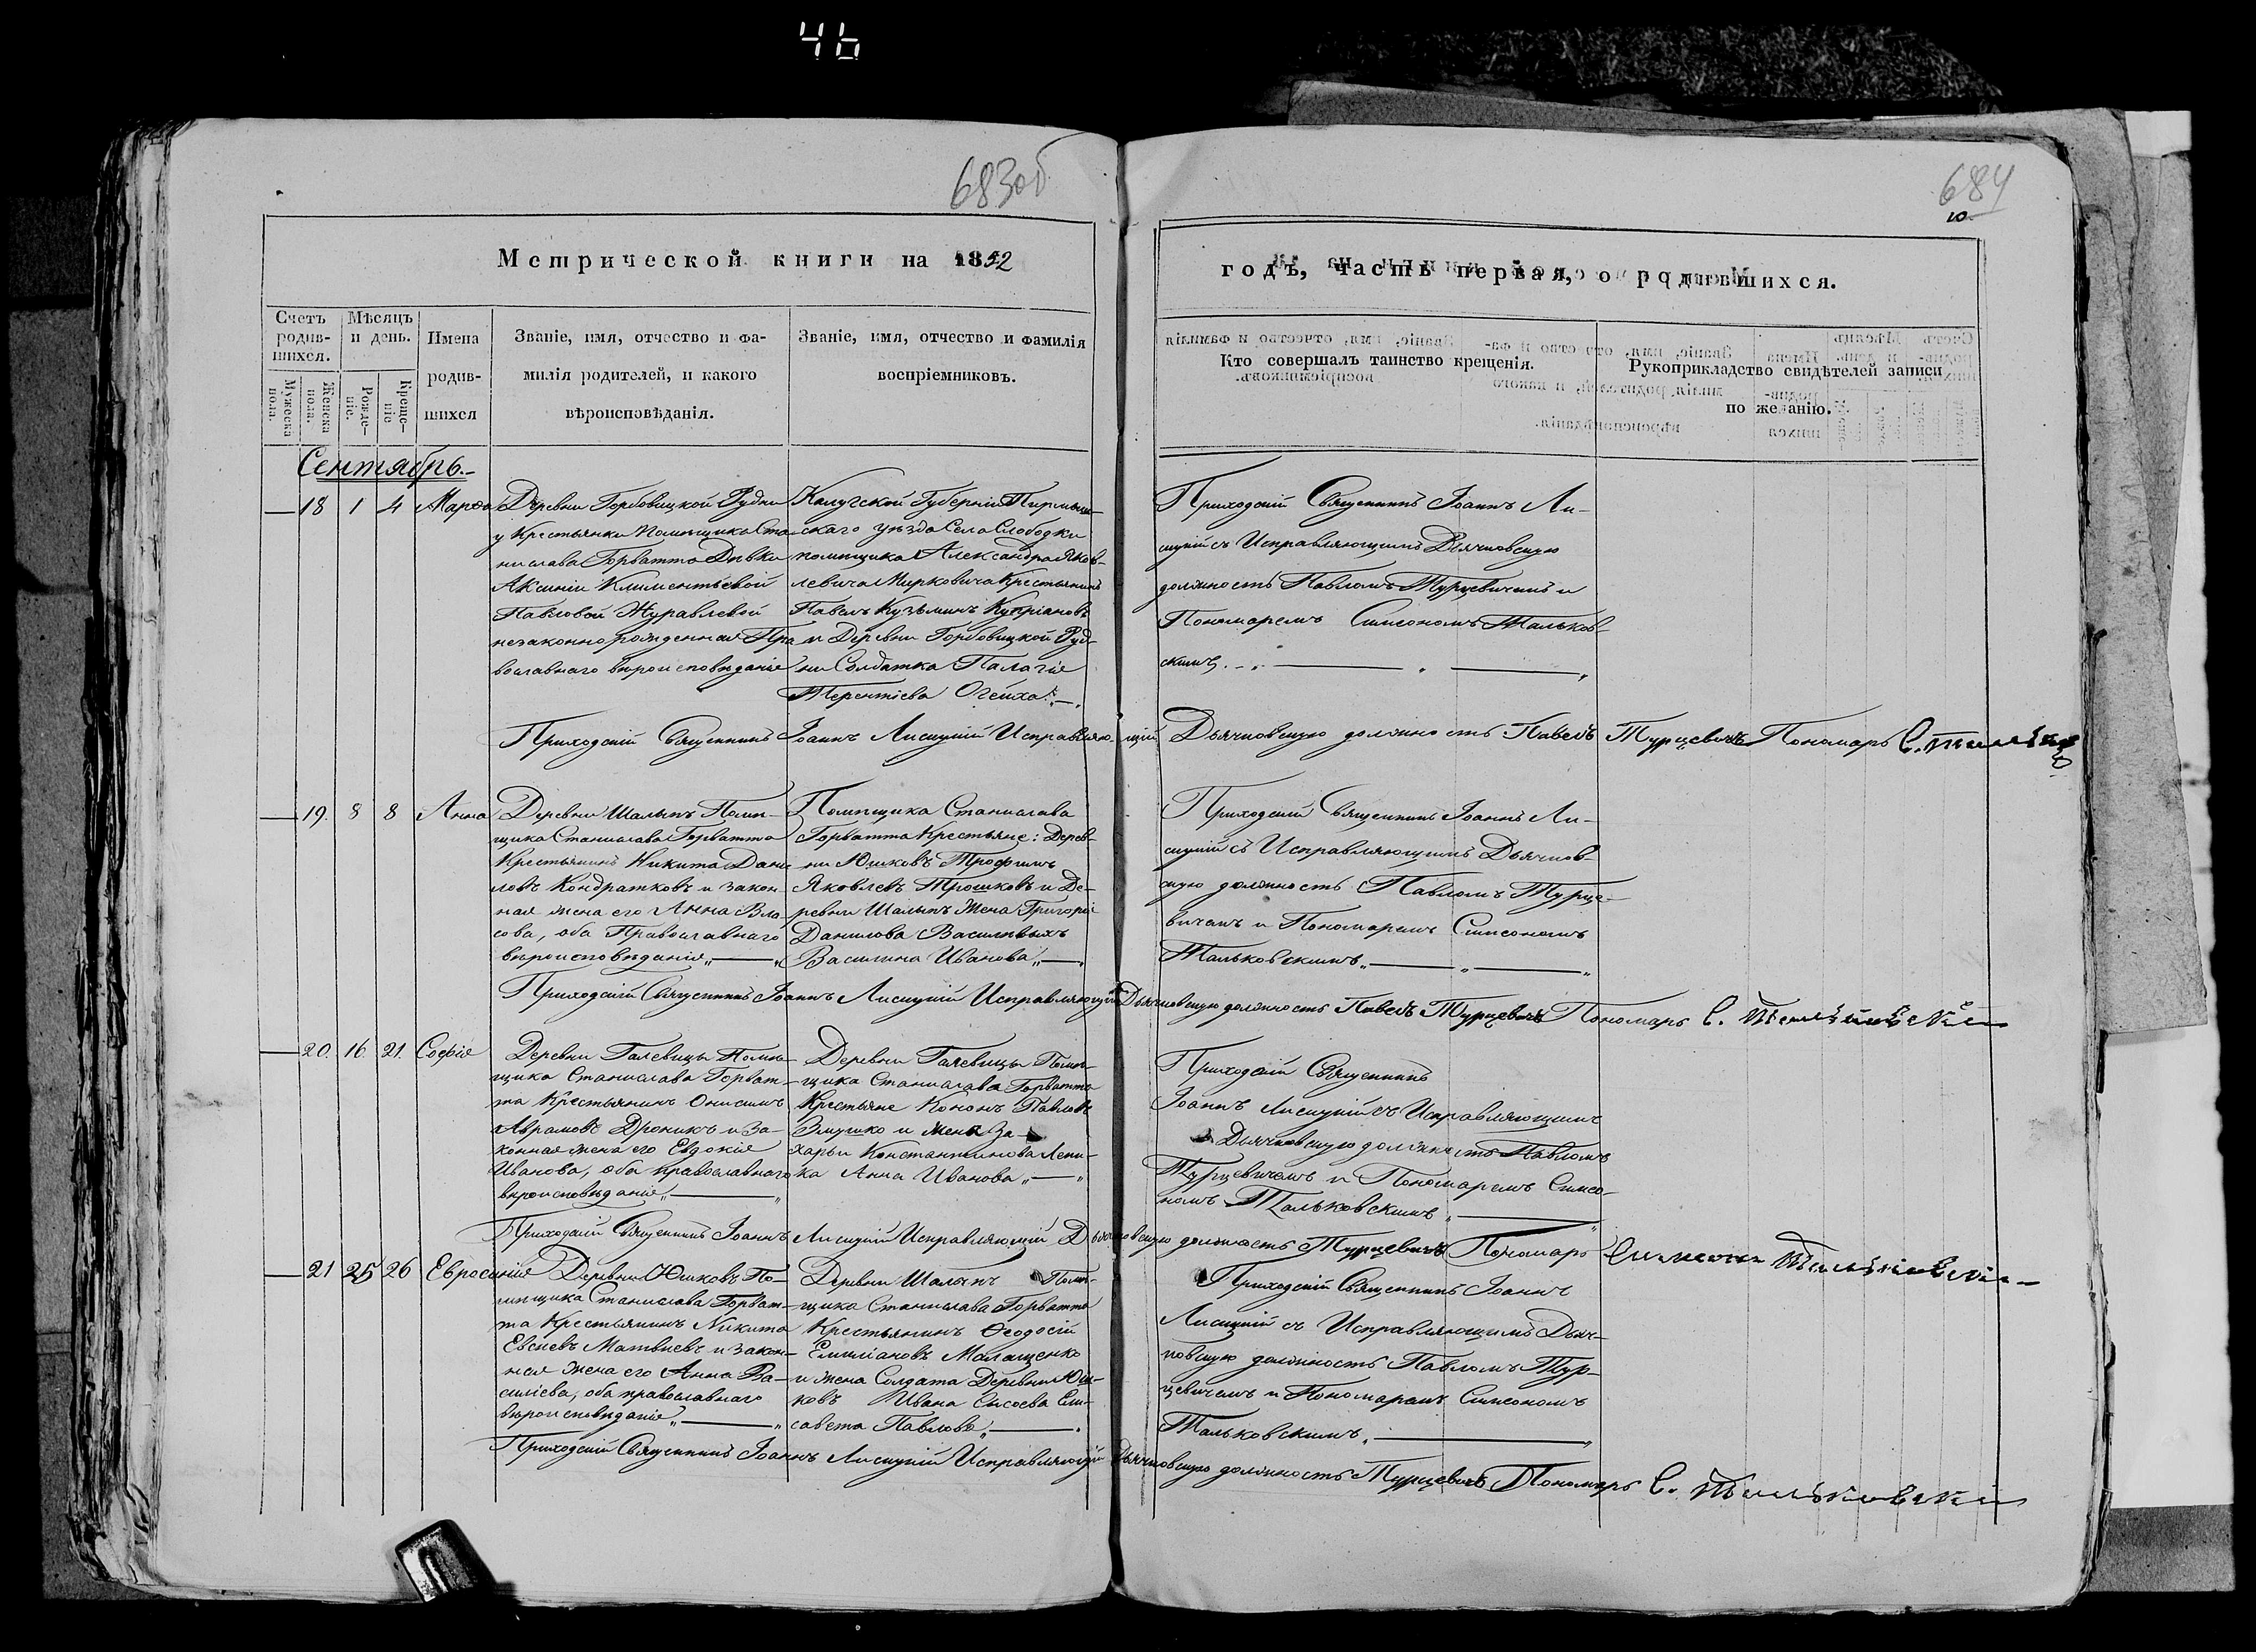 46
683об
684
10
Метрической книги на 1852
годъ, часть первая, о родившихся.
Счетъ родив-шихся.
Мужеска пола.
Женска пола.
Мѣсяцъ и день.
Рожде-ніе.
Креще-ніе
Имена родив-шихся
Званіе, имя, отчество и фа-
милія родителей, и какого
вѣроисповѣданія.
Званіе, имя, отчество и фамилія
воспріемниковъ.
Кто совершалъ таинство крещенія.
Рукоприкладство свидѣтелей записи
по желанію.
Сентябрь.
18 1 4 Марѳа
Деревни Горбовицкой Рудни
у Крестьянки Помѣщика Ста-
нислава Горватта Дѣвки
Аксиніи Климентьевой
Павловой Журавлевой
незаконнорожденная Пра
вославнаго вѣроисповѣданіе
Калужской Губерніи
скаго уѣзда Села Слободки
помѣщика Александра Яков-
левича Мирковича Крестьянинъ
Павелъ Кузьминъ Купріановъ
и Деревни Горбовицкой Руд-
ни Солдатка Палагія
Терентіева
Приходскій Священникъ Іоаннъ Ли-
сицкій съ Исправляющимъ Дьячковскую
должность Павломъ Турцевичемъ и
Пономаремъ Симеономъ Тальков-
скимъ
Приходскій Священникъ Іоаннъ Лисицкій Исправляющій Дьячковскую должность Павелъ Турцевичъ Пономарь С.
19. 8 8 Анна
Деревни Шалыпъ Помѣ-
щика Станислава Горватта
Крестьянинъ Никита Дани
ловъ Кондратковъ и закон-
ная жена его Анна Вла-
сова, оба Православнаго
вѣроисповѣданія
Помѣщика Станислава
Горватта Крестьяне: Дерев-
ни Юшковъ Трофимъ
Яковлевъ Трошковъ и Де-
ревни Шалыпъ Жена Григорія
Данилова
Василина Иванова
Приходскій Священникъ Іоаннъ Ли-
сицкій съ Исправляющимъ Дьячков-
скую должность Павломъ Турце-
вичемъ и Пономаремъ Симеономъ
Тальковскимъ
Приходскій Священникъ Іоаннъ Лисицкій Исправляющій Дьячковскую должность Павелъ Турцевичъ Пономарь С. Тальковскій
20. 16 21. Софія
Деревни Галевицы Помѣ-
щика Станислава Горват-
та Крестьянинъ Онисимъ
Аврамовъ Дроникъ и за-
конная жена его Евдокія
Иванова, оба православнаго
вѣроисповѣданіе
Деревни Галевицы Помѣ-
щика Станислава Горватта
Крестьяне Кононъ Павловъ
и жена За-
харьи Константинова Лепи-
ка Анна Иванова
Приходскій Священникъ
Іоаннъ Лисицкій съ Исправляющимъ
Дьячковскую должность Павломъ
Турцевичемъ и Пономаремъ Симео-
номъ Тальковскимъ
Приходскій Священникъ Іоаннъ Лисицкій Исправляющій Дьячковскую должность Турцевичъ Пономарь Симеонъ Тальковскій
21 25 26 Евросинія
Деревни Юшковъ По-
мѣщика Станислава Горват-
та Крестьянинъ Никита
Евсѣевъ Матвѣевъ и закон-
ная жена его Анна Ва-
силіева, оба православнаго
вѣроисповѣданіе
Деревни Шалыпъ Помѣ-
щика Станислава Горватта
Крестьянинъ Ѳеодосій
Емиліановъ Малащенко
и жена Солдата Деревни Юш-
ковъ Ивана Сисоева Ели-
савета Павлова
Приходскій Священникъ Іоаннъ
Лисицкій съ Исправляющимъ Дьяч-
ковскую должность Павломъ Тур-
цевичемъ и Пономаремъ Симеономъ
Тальковскимъ
Приходскій Священникъ Іоаннъ Лисицкій Исправляющій Дьячковскую должность Турцевичъ Пономарь С. Тальковскій